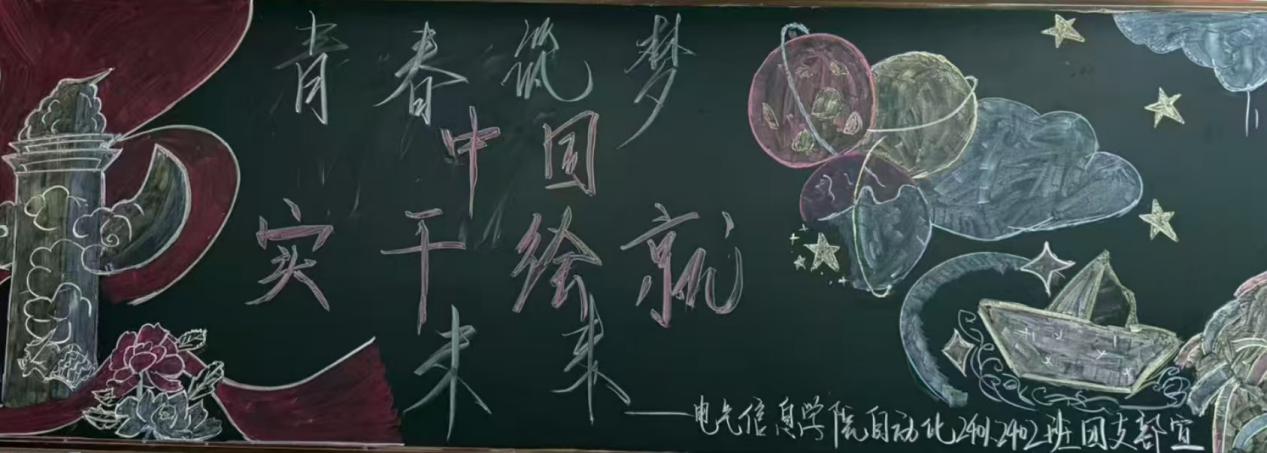 青春筑梦
中国
实干绘就
未来
——电气信息学院自动化2401.2402班团支部宣